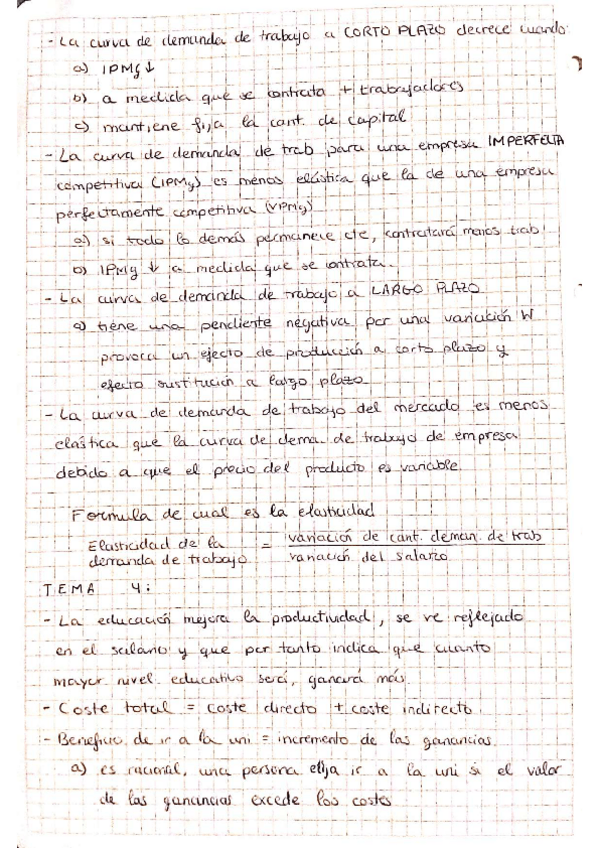 - La curva de demanda de trabajo a CORTO PLAZO decrece cuando
a) IPMg ↓
b) a medida que se contrata + trabajadores
c) mantiene fija la cant. de capital
- La curva de demanda de trab para una empresa IMPERFECTA
competitiva (IPMg) es menos elástica que la de una empresa
perfectamente competitiva (VPMg)
a) si todo lo demás permanece cte, contratará menos trab
b) IPMg ↓ a medida que se contrata.
- La curva de demanda de trabajo a LARGO PLAZO
a) tiene una pendiente negativa por una variación W
provoca un efecto de producción a corto plazo y
efecto sustitución a largo plazo
- La curva de demanda de trabajo del mercado es menos
elástica que la curva de dema. de trabajo de empresa
debido a que el precio del producto es variable
Formula de cual es la elasticidad
Elasticidad de la demanda de trabajo = variación de cant. deman. de trab / variación del salario
TEMA 4:
- La educación mejora la productividad, se ve reflejado
en el salario y que por tanto indica que cuanto
mayor nivel educativo será, ganará más.
- Coste total = coste directo + coste indirecto
- Beneficio de ir a la uni = incremento de las ganancias.
a) es racional, una persona elija ir a la uni si el valor
de las ganancias excede los costes